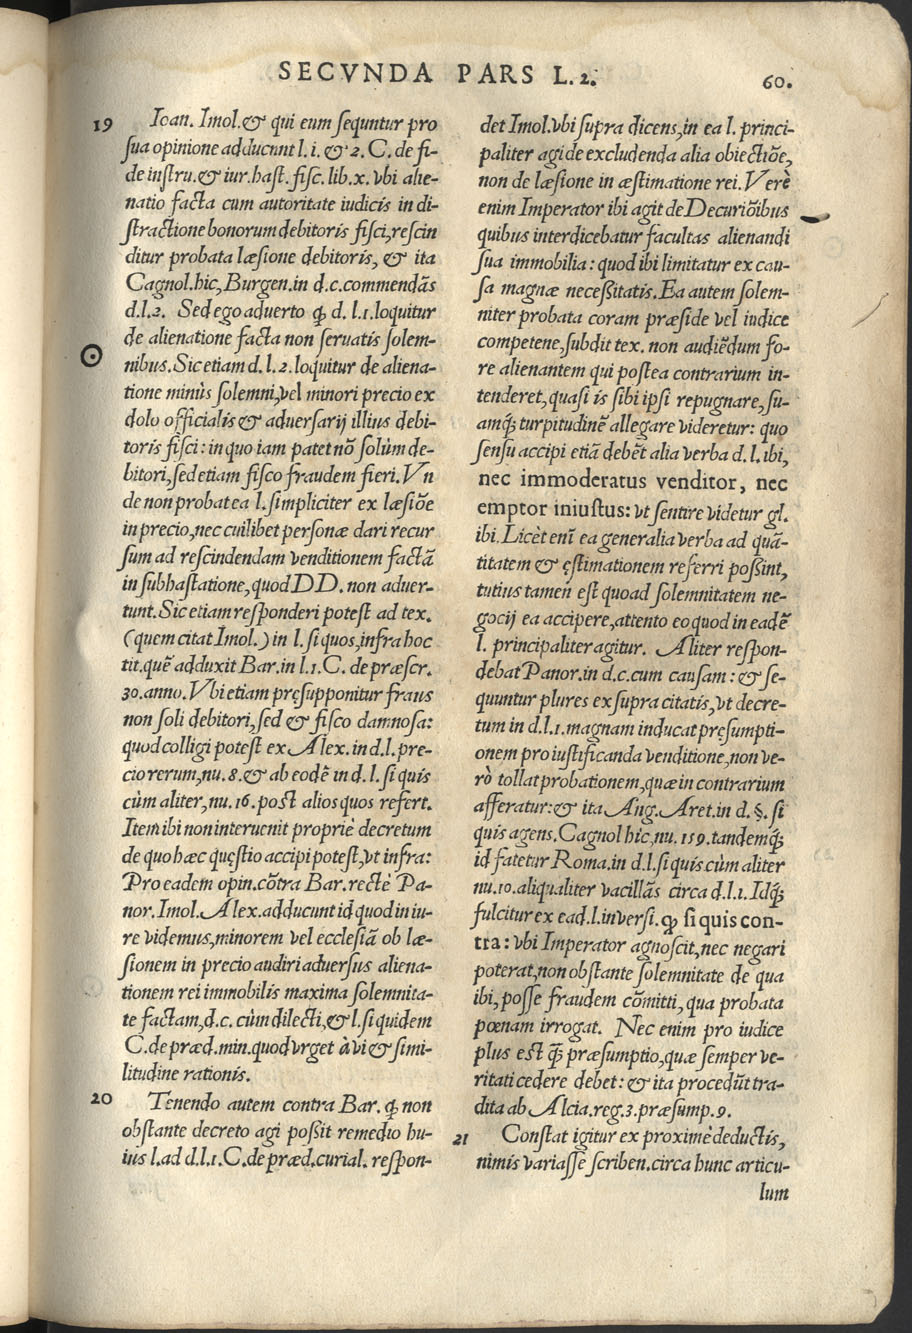 SECVNDA PARS L.2.
60.
19 Ioan. Imol.& qui eum ſequntur pro
ſua opinione adducunt l. i. & 2. C. de fi-
de inſtru.& iur.haſt. fiſc. lib. x. vbi alie-
natio facta cum autoritate iudicis in di-
ſtractione bonorum debitoris fiſci,reſcin
ditur probata læſione debitoris, & ita
Cagnol.hic, Burgen.in d.c.commendãs
d.l.2. Sed ego aduerto ꝙ d. l.1.loquitur
de alienatione facta non ſeruatis ſolem-
nibus.Sic etiam d. l. 2.loquitur de aliena-
tione minùs ſolemni,vel minori precio ex
dolo officialis & aduerſarij illius debi-
toris fiſci: in quo iam patet nõ ſolùm de-
bitori,ſed etiam fiſco fraudem fieri. Vn
de non probat ea l.ſimpliciter ex læſiõe
in precio,nec cuilibet perſonæ dari recur
ſum ad reſcindendam venditionem factã
in ſubhaſtatione,quod DD. non aduer-
tunt. Sic etiam reſponderi poteſt ad tex.
(quem citat Imol.) in l. ſi quos,infra hoc
tit.quẽ adduxit Bar.in l.1.C. de præſcr.
30.anno. Vbi etiam pręſupponitur fraus
non ſoli debitori,ſed & fiſco damnoſa:
quod colligi poteſt ex Alex. in d.l. pre-
cio rerum,nu. 8.& ab eodẽ in d. l. ſi quis
cùm aliter, nu. 16. poſt alios quos refert.
Item ibi non interuenit propriè decretum
de quo hæc quęſtio accipi poteſt,vt infra:
Pro eadem opin.cõtra Bar.rectè Pa-
nor. Imol. Alex.adducunt id quod in iu-
re videmus,minorem vel eccleſiã ob læ-
ſionem in precio audiri aduerſus aliena-
tionem rei immobilis maxima ſolemnita-
te factam,d.c. cùm dilecti,& l.ſi quidem
C.de præd.min.quod vrget à vi & ſimi-
litudine rationis.
20 Tenendo autem contra Bar. ꝙ non
obſtante decreto agi poßit remedio hu-
ius l.ad d.l.1.C.de præd.curial. reſpon-
det Imol.vbi ſupra dicens,in ea l. princi-
paliter agi de excludenda alia obiectiõe,
non de læſione in æſtimatione rei. Verè
enim Imperator ibi agit de Decuriõibus
quibus interdicebatur facultas alienandi
ſua immobilia: quod ibi limitatur ex cau-
ſa magnæ neceßitatis. Ea autem ſolem-
niter probata coram præſide vel iudice
competẽte,ſubdit tex. non audiẽdum fo-
re alienantem qui poſtea contrarium in-
tenderet,quaſi is ſibi ipſi repugnare, ſu-
amq́; turpitudinẽ allegare videretur: quo
ſenſu accipi etiã debẽt alia verba d. l. ibi,
nec immoderatus venditor, nec
emptor iniuſtus: vt ſentire videtur gl.
ibi. Licèt enĩ ea generalia verba ad quã-
titatem & ęſtimationem referri poßint,
tutius tamen eſt quoad ſolemnitatem ne-
gocij ea accipere,attento eo quod in eadẽ
l. principaliter agitur. Aliter reſpon-
debat Panor.in d.c.cum cauſam: & ſe-
quuntur plures ex ſupra citatis,vt decre-
tum in d.l.1.magnam inducat pręſumpti-
onem pro iuſtificanda venditione,non ve-
rò tollat probationem,quæ in contrarium
afferatur:& ita Ang. Aret.in d. §. ſi
quis agens. Cagnol hîc,nu. 159.tandemq́;
id fatetur Roma.in d.l.ſi quis cùm aliter
nu.10.aliqualiter vacillãs circa d.l.1. Idq́;
fulcitur ex ead.l.in verſi. ꝙ ſi quis con-
tra: vbi Imperator agnoſcit,nec negari
poterat,non obſtante ſolemnitate de qua
ibi, poſſe fraudem cõmitti, qua probata
pœnam irrogat. Nec enim pro iudice
plus eſt q̃ præſumptio,quæ ſemper ve-
ritati cedere debet: & ita procedũt tra-
dita ab Alcia.reg.3.præſump.9.
21 Conſtat igitur ex proximè deductis,
nimis variaſſe ſcriben.circa hunc articu-
lum